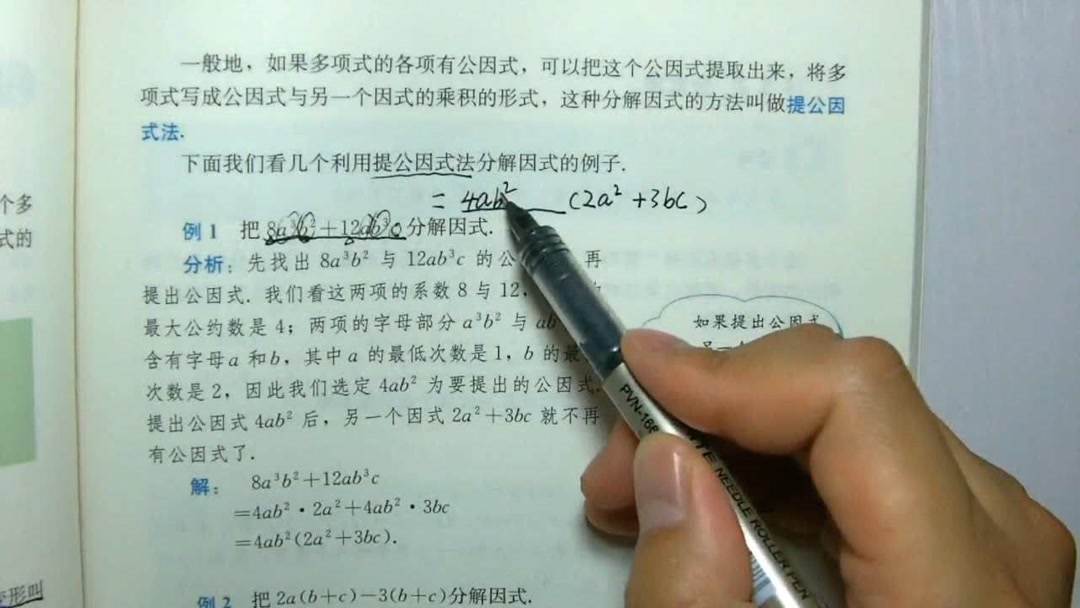 一般地，如果多项式的各项有公因式，可以把这个公因式提取出来，将多
项式写成公因式与另一个因式的乘积的形式，这种分解因式的方法叫做提公因
式法.
下面我们看几个利用提公因式法分解因式的例子.
= 4ab² (2a²+3bc)
例1 把 8a³b²+12ab³c 分解因式.
分析：先找出 8a³b² 与 12ab³c 的公 再
提出公因式. 我们看这两项的系数 8 与 12，
最大公约数是 4；两项的字母部分 a³b² 与 ab
含有字母 a 和 b，其中 a 的最低次数是 1，b 的最
次数是 2，因此我们选定 4ab² 为要提出的公因式.
提出公因式 4ab² 后，另一个因式 2a²+3bc 就不再
有公因式了.
解： 8a³b²+12ab³c
=4ab²·2a²+4ab²·3bc
=4ab²(2a²+3bc).
例2 把 2a(b+c)-3(b+c)分解因式.
如果提出公因式
个多
式的
形叫
PVN-166
NEEDLE ROLLER PEN